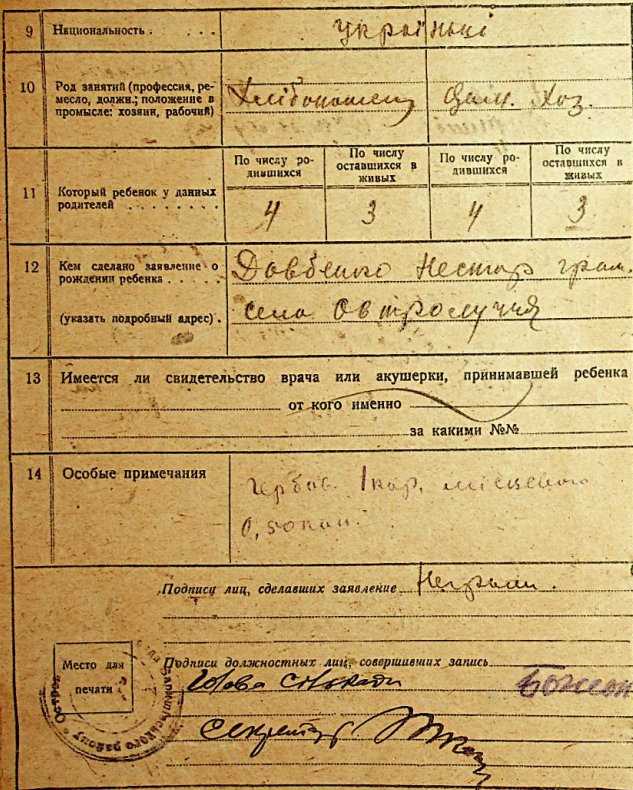 9 Национальность . . . . . українці
10 Род занятий (профессия, ре-
месло, должн.; положение в
промысле: хозяин, рабочий)
Хлібопашец Дом. Хоз.
По числу ро-
дившихся
По числу
оставшихся в
живых
По числу ро-
дившихся
По числу
оставшихся в
живых
11 Который ребенок у данных
родителей . . . . . . . .
4 3 4 3
12 Кем сделано заявление о
рождении ребенка . . . . .
(указать подробный адрес) .
Довбенко Нестор гром.
села
13 Имеется ли свидетельство врача или акушерки, принимавшей ребенка
от кого именно
за какими №№
14 Особые примечания
Гербов. 1 кар. місцевого
0,50 коп.
Подписи лиц, сделавших заявление
Место для
печати
Подписи должностных лиц, совершивших запись
Голова сільради
Секретар
району